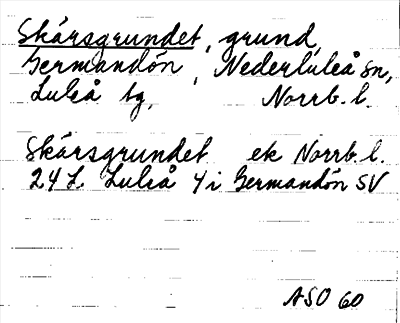 Skärsgrundet, grund,
Germandön, Nederluleå sn,
Luleå tg, Norrb. l.
Skärsgrundet ek Norrb. l.
24 L Luleå 4i Germandön SV
ASO 60